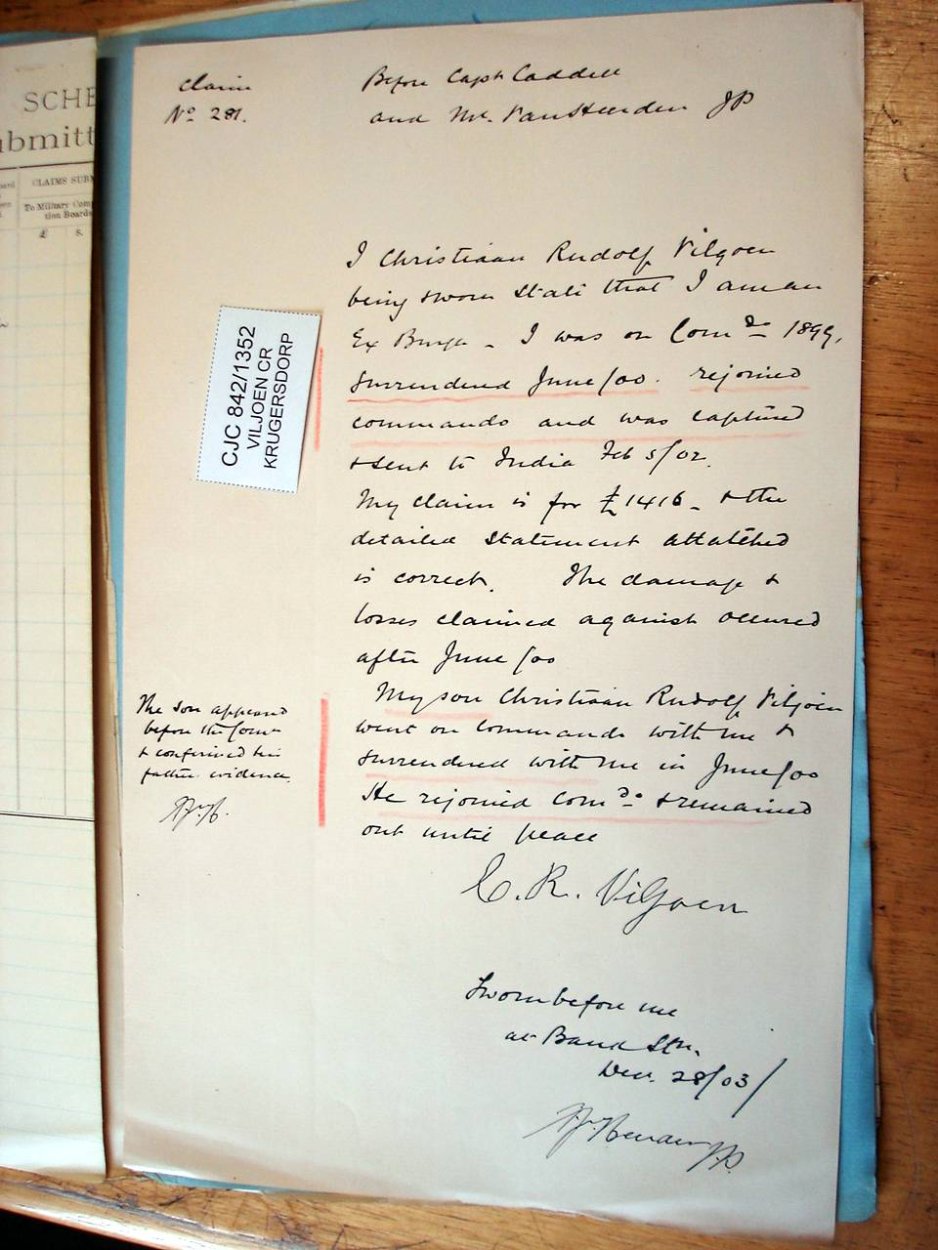 SCHE
ubmitt
CLAIMS SUBM
To Military Comp
tion Boards
£ s.
Claim
No 281.
Before Capt Caddell
and Mr. VanHeerden JP
CJC 842/1352
VILJOEN CR
KRUGERSDORP
I Christiaan Rudolf Viljoen
being sworn state that I am an
Ex Burgr - I was on Comdo 1899,
surrendered June/00. rejoined
commando and was captured
& sent to India Feb 5/02.
My claim is for £1416 - & the
detailed statement attatched
is correct. The damage &
losses claimed against occured
after June/00
My son Christiaan Rudolf Viljoen
went on commando with me &
surrendered with me in June/00
He rejoined Comdo. & remained
out until peace
The son appeared
before the Comn
& confirmed his
father evidence.
C. R. Viljoen
Sworn before me
at Bank Stn.
Dec. 28/03/
JP